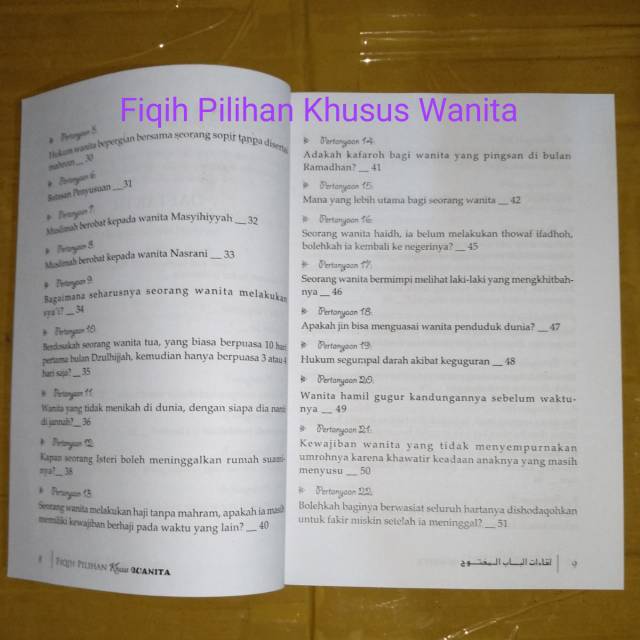 Fiqih Pilihan Khusus Wanita
Pertanyaan 5:
Hukum wanita bepergian bersama seorang sopir tanpa disertai
mahram __ 30
Pertanyaan 6:
Batasan Penyusuan __ 31
Pertanyaan 7:
Muslimah berobat kepada wanita Masyihiyyah __ 32
Pertanyaan 8:
Muslimah berobat kepada wanita Nasrani __ 33
Pertanyaan 9:
Bagaimana seharusnya seorang wanita melakukan
sya'i? __ 34
Pertanyaan 10:
Berdosakah seorang wanita tua, yang biasa berpuasa 10 hari
pertama bulan Dzulhijjah, kemudian hanya berpuasa 3 atau 4
hari saja? __ 35
Pertanyaan 11:
Wanita yang tidak menikah di dunia, dengan siapa dia nanti
di jannah? __ 36
Pertanyaan 12:
Kapan seorang Isteri boleh meninggalkan rumah suami-
nya? __ 38
Pertanyaan 13:
Seorang wanita melakukan haji tanpa mahram, apakah ia masih
memiliki kewajiban berhaji pada waktu yang lain? __ 40
8 | FIQIH PILIHAN Khusus WANITA
Pertanyaan 14:
Adakah kafaroh bagi wanita yang pingsan di bulan
Ramadhan? __ 41
Pertanyaan 15:
Mana yang lebih utama bagi seorang wanita __ 42
Pertanyaan 16:
Seorang wanita haidh, ia belum melakukan thowaf ifadhoh,
bolehkah ia kembali ke negerinya? __ 45
Pertanyaan 17:
Seorang wanita bermimpi melihat laki-laki yang mengkhitbah-
nya __ 46
Pertanyaan 18:
Apakah jin bisa menguasai wanita penduduk dunia? __ 47
Pertanyaan 19:
Hukum segumpal darah akibat keguguran __ 48
Pertanyaan 20:
Wanita hamil gugur kandungannya sebelum waktu-
nya __ 49
Pertanyaan 21:
Kewajiban wanita yang tidak menyempurnakan
umrohnya karena khawatir keadaan anaknya yang masih
menyusu __ 50
Pertanyaan 22:
Bolehkah baginya berwasiat seluruh hartanya dishodaqohkan
untuk fakir miskin setelah ia meninggal? __ 51
لقاءات الباب المفتوح | 9